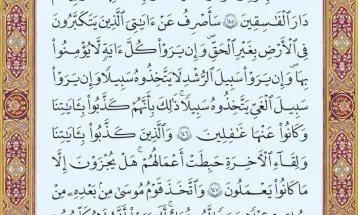 دَارَ ٱلْفَٰسِقِينَ ١٤٥ سَأَصْرِفُ عَنْ ءَايَٰتِيَ ٱلَّذِينَ يَتَكَبَّرُونَ
فِي ٱلْأَرْضِ بِغَيْرِ ٱلْحَقِّ وَإِن يَرَوْا۟ كُلَّ ءَايَةٍ لَّا يُؤْمِنُوا۟
بِهَا وَإِن يَرَوْا۟ سَبِيلَ ٱلرُّشْدِ لَا يَتَّخِذُوهُ سَبِيلًا وَإِن يَرَوْا۟
سَبِيلَ ٱلْغَيِّ يَتَّخِذُوهُ سَبِيلًا ۚ ذَٰلِكَ بِأَنَّهُمْ كَذَّبُوا۟ بِـَٔايَٰتِنَا
وَكَانُوا۟ عَنْهَا غَٰفِلِينَ ١٤٦ وَٱلَّذِينَ كَذَّبُوا۟ بِـَٔايَٰتِنَا
وَلِقَآءِ ٱلْأٓخِرَةِ حَبِطَتْ أَعْمَٰلُهُمْ ۚ هَلْ يُجْزَوْنَ إِلَّا
مَا كَانُوا۟ يَعْمَلُونَ ١٤٧ وَٱتَّخَذَ قَوْمُ مُوسَىٰ مِنۢ بَعْدِهِۦ مِنْ